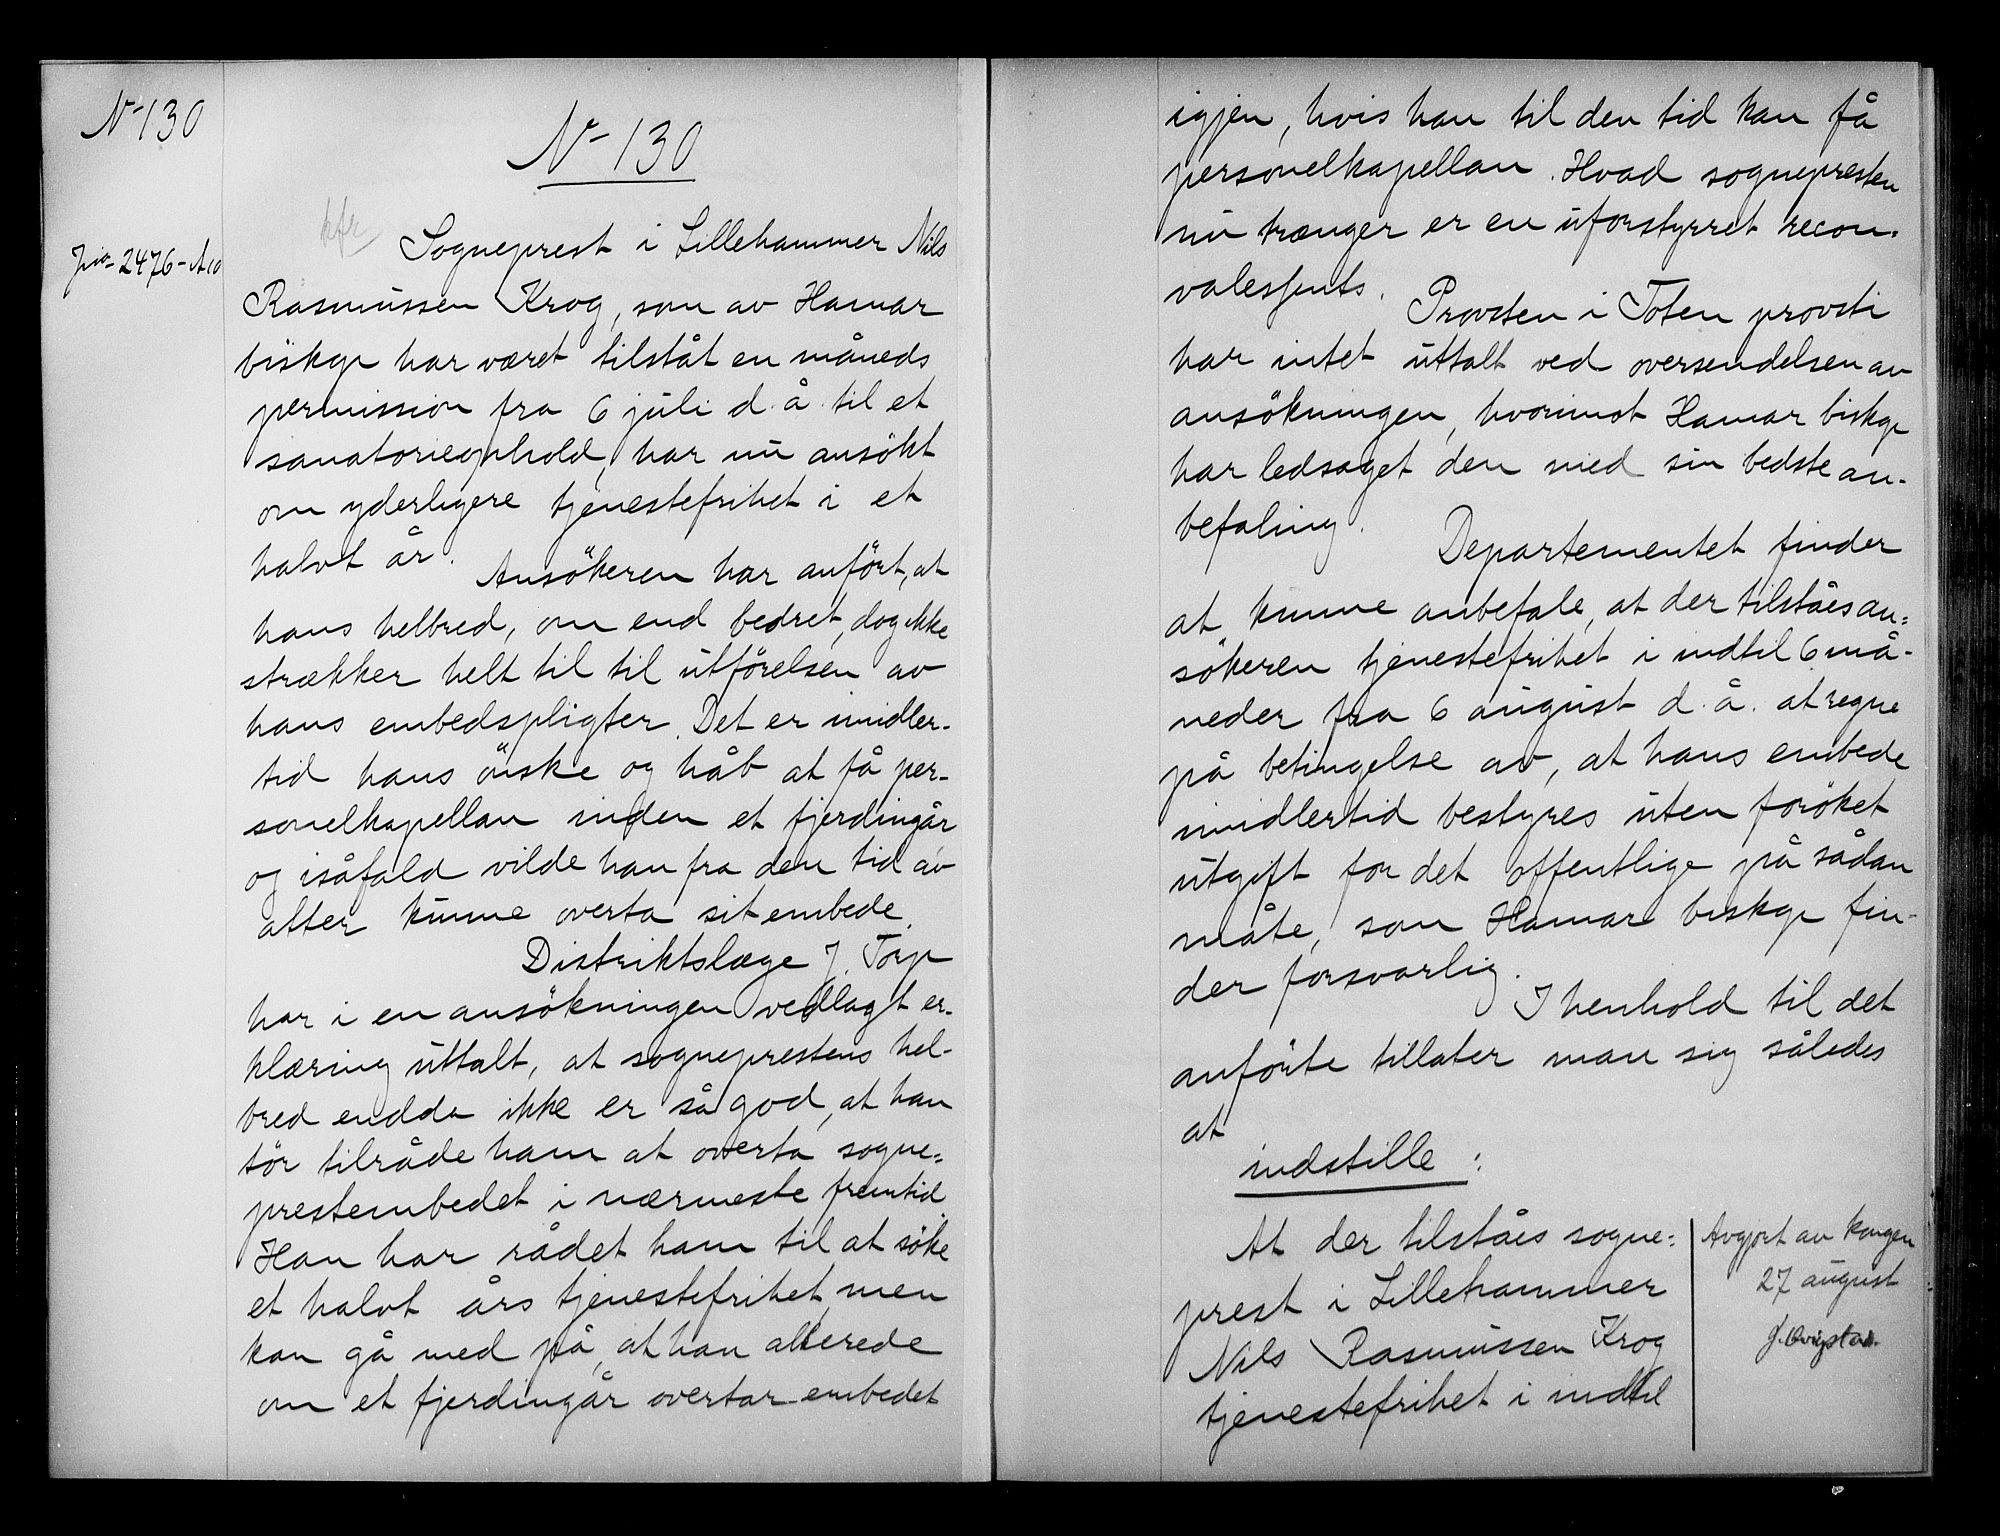 No 130
No 130
kfr
Jno 2476 - A 10
Sogneprest i Lillehammer Nils
Rasmussen Krog, som av Hamar
biskop har været tilståt en måneds
permission fra 6 juli d.å. til et
sanatorieophold, har nu ansökt
om yderligere tjenestefrihet i et
halvt år.
Ansökeren har anfört, at
hans helbred, om end bedret, dog ikke
strækker helt til til utförelsen av
hans embedspligter. Det er imidler-
tid hans önske og håb at få per-
sonelkapellan inden et fjerdingår
og isåfald vilde han fra den tid av
atter kunne overta sit embede.
Distriktslæge J. Torp
har i en ansökningen vedlagt er-
klæring uttalt, at sogneprestens hel-
bred endda ikke er så god, at han
tör tilråde ham at overta sogne-
prestembedet i nærmeste fremtid.
Han har rådet ham til at söke
et halvt års tjenestefrihet, men
kan gå med på, at han allerede
om et fjerdingår overtar embedet
igjen, hvis han til den tid kan få
personelkapellan. Hvad sognepresten
nu trænger er en uforstyrret recon-
valesfents.
Provsten i Toten provsti
har intet uttalt ved oversendelsen av
ansökningen, hvorimot Hamar biskop
har ledsaget den med sin bedste an-
befaling.
Departementet finder
at kunne anbefale, at der tilståes an-
sökeren tjenestefrihet i indtil 6 må-
neder fra 6 august d.å. at regne
på betingelse av, at hans embede
imidlertid bestyres uten foröket
utgift for det offentlige på sådan
måte, som Hamar biskop fin-
der forsvarlig.
I henhold til det
anförte tillater man sig således
at
indstille:
At der tilståes sogne-
prest i Lillehammer
Nils Rasmussen Krog
tjenestefrihet i indtil
Avgjort av kongen
27 august
J. Qvigstad.